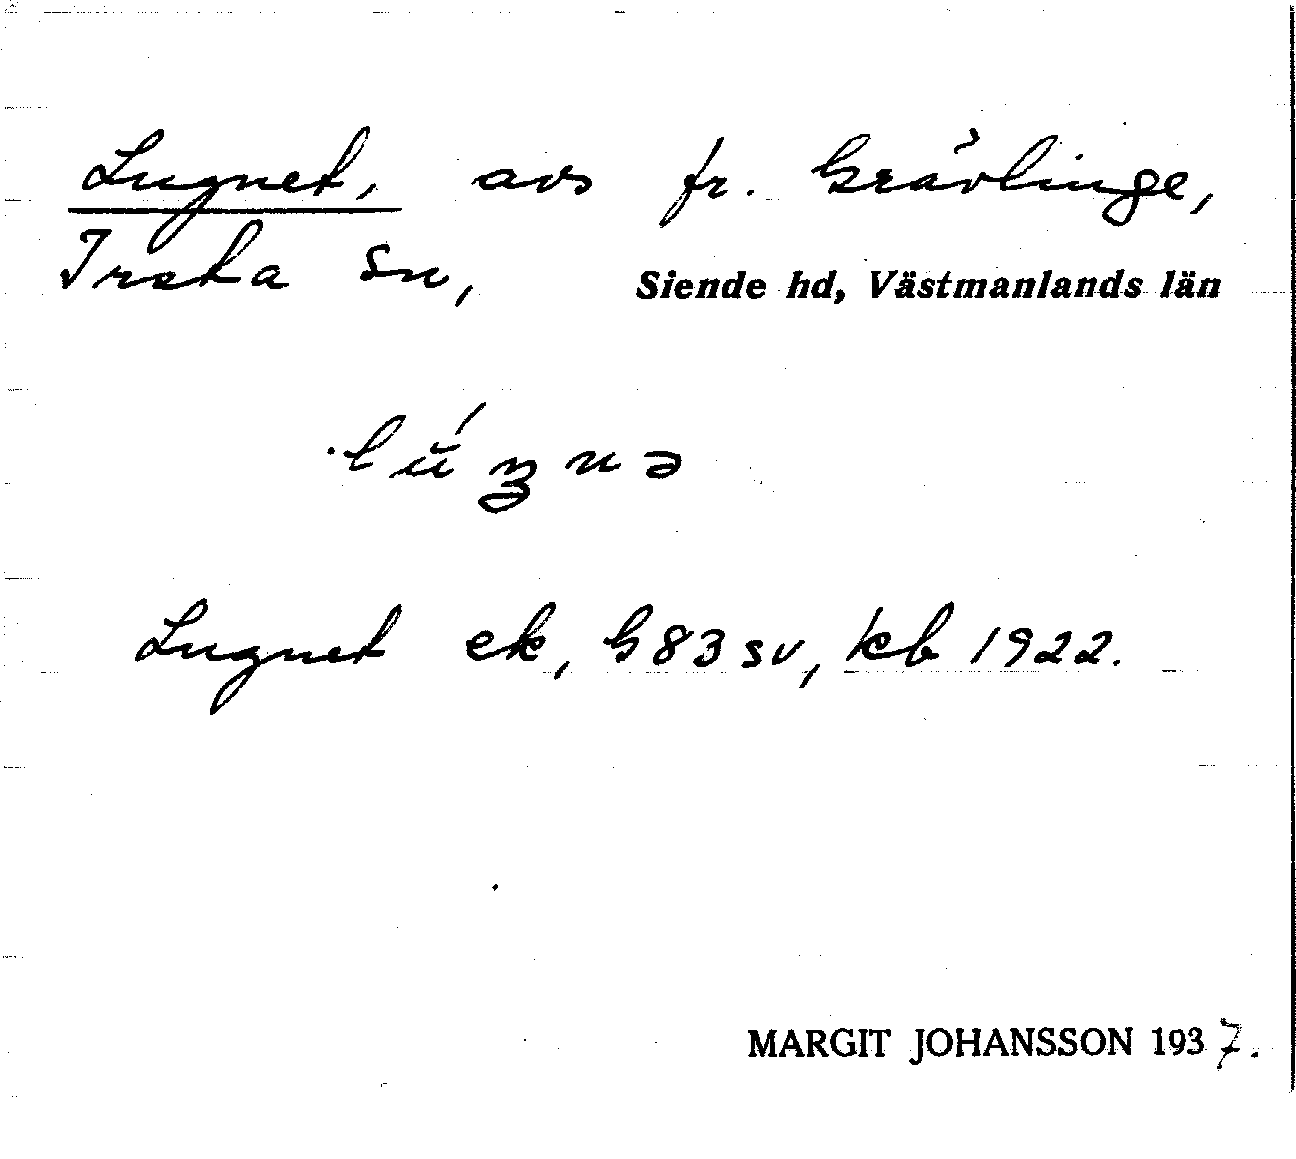 Lugnet, avs fr. Grävlinge,
Irsta sn, Siende hd, Västmanlands län
Lugnet ek, G83sv, kb 1922.
MARGIT JOHANSSON 1937.